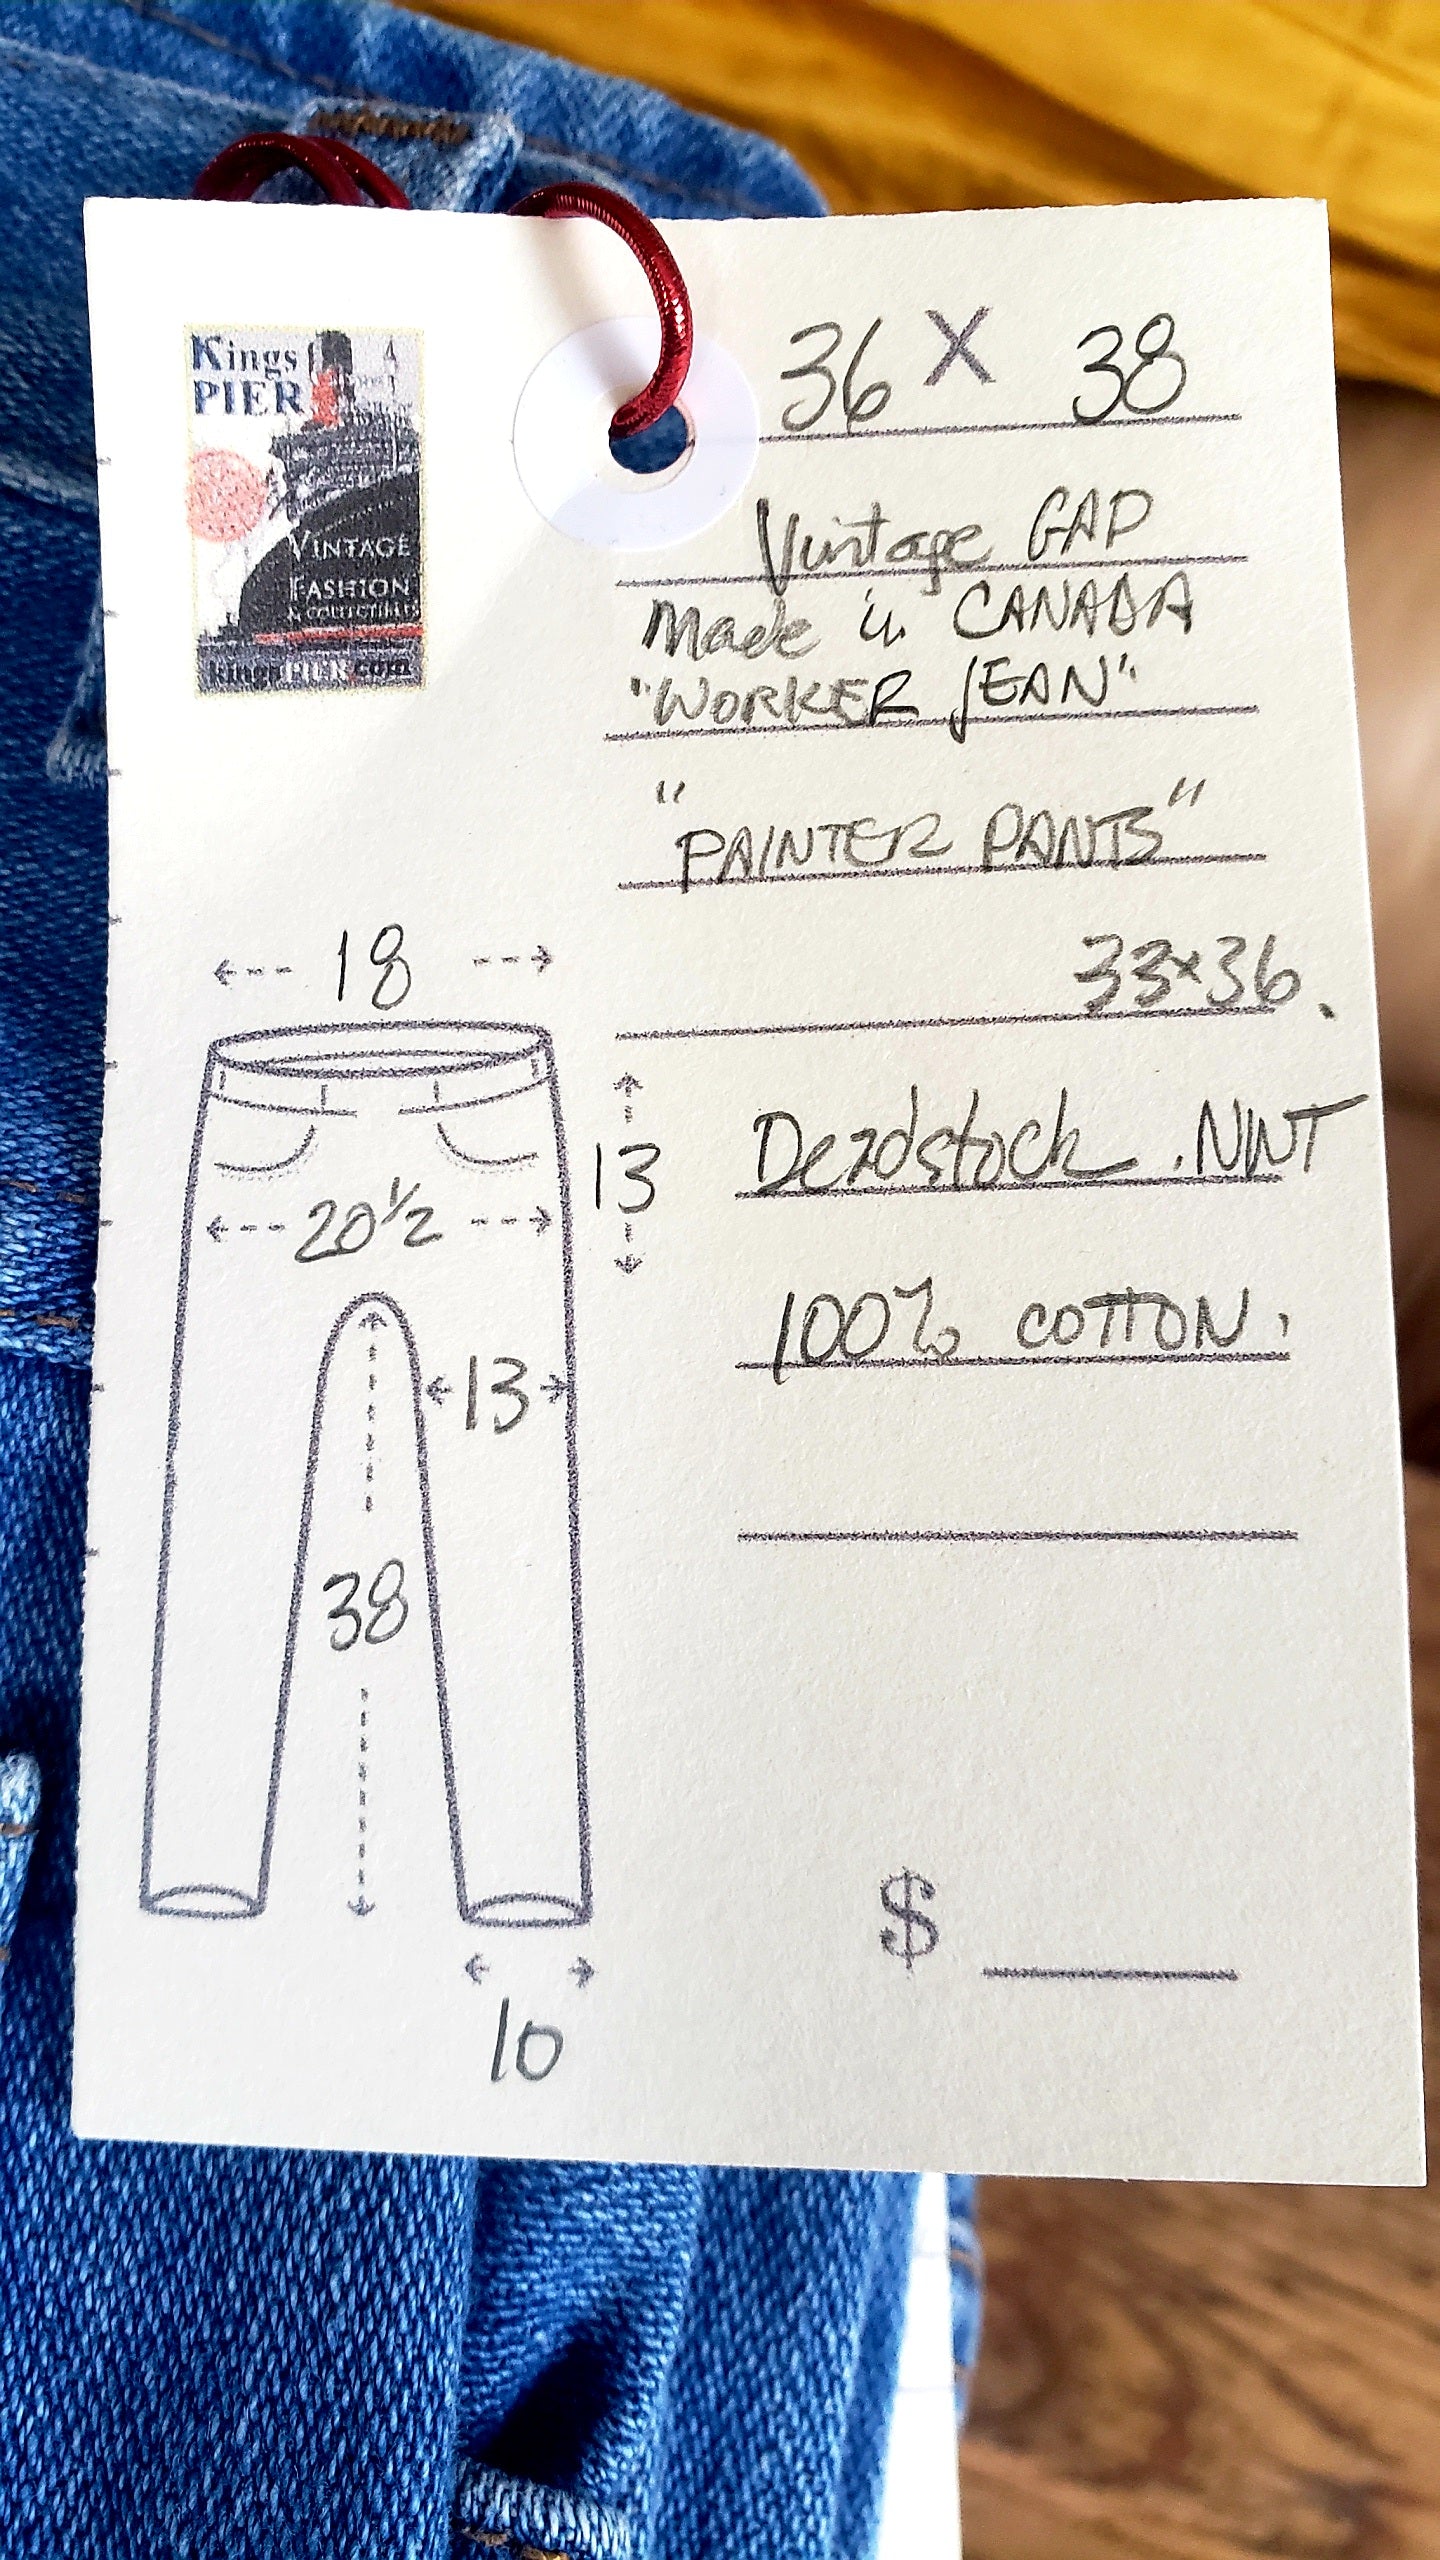 Kings
PIER
VINTAGE
FASHION
& COLLECTIBLES
kingsPIER.com
36 X 38
Vintage GAP
Made in CANADA
"WORKER JEAN"
"PAINTER PANTS"
33x36.
Deadstock. NWT
100% COTTON.
18
13
20 1/2
13
38
10
$